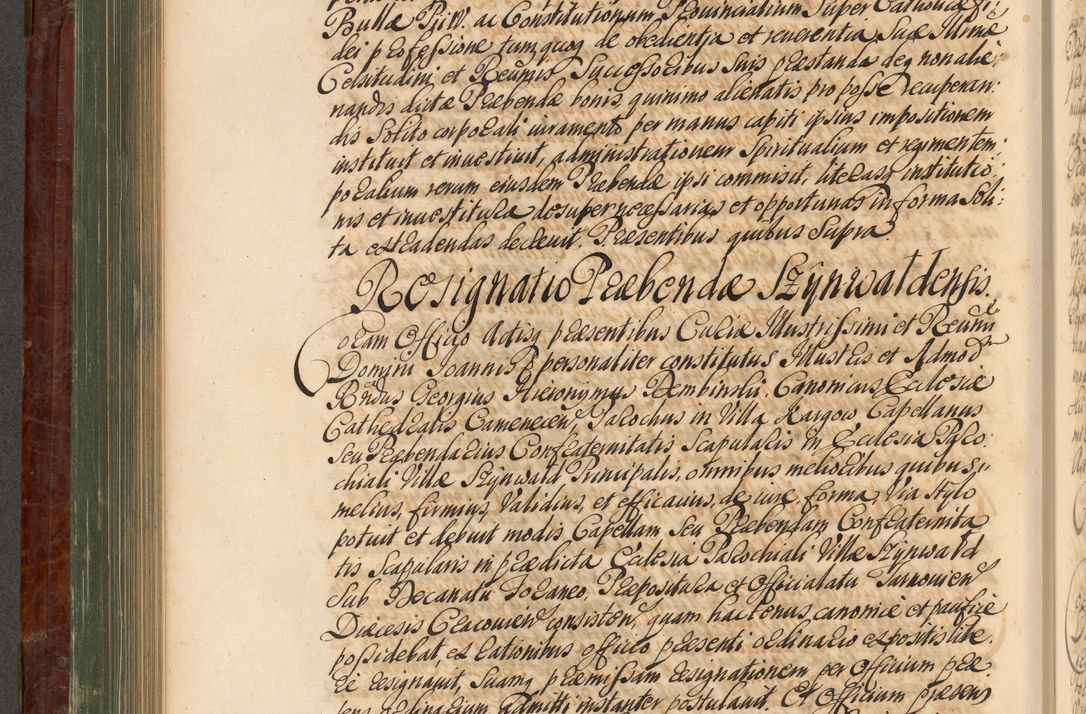 Bullæ Piiv. ac Constitutionum Provincialium Super Catholicæ fi:
dei professione tum quoq de obedientia et reverentia Suæ Illmæ
Celsitudini et Reumis Successoribus Suis præstanda deq non alie:
nandis dictæ Præbendæ bonis, quinimo alienatis pro posse recuperan:
dis Solito corporali iuramento per manus capiti ipsius impositionem
instituit et investivit, administrationem Spiritualium et regimen tem:
poralium rerum eiusdem Præbendæ ipsi commisit, literasq institutio:
nis et investitura desuper necessarias et opportunas in forma Soli:
ta extradendas decrevit. Præsentibus quibus Supra.
Resignatio Præbendæ Szÿnwaldensis.
Coram Officio Actisq præsentibus Curiæ Illustrissimi et Reumi
Domini Joannis P personaliter constitutus Illustris et Admod
Rndus Georgius Hieronymus Dembinski, Canonicus Ecclesiæ
Cathedralis Camenecen, Parochus in Villa Xargow Capellanus
Seu Præbendarius Confraternitatis Scapularis in Ecclesia Paro:
chiali Villæ Szÿnwald Principalis, omnibus melioribus quibusq
melius, firmius, Validius, et efficacius, de iure forma, Via Stylo
potuit et debuit modis Capellam Seu Præbendam Confraternita
tis Scapularis in prædicta Ecclesia Parochiali Villæ Szÿnwald
Sub Decanatu Foraneo, Præpositura et Officialatu Tarnovien
Diæcesis Cracovien consisten, quam hactenus canonice et pacifice
possidebat, ex rationibus officio præsenti ordinario expositis libe:
re resignavit, Suamq præmissam resignationem per Officium præ
sens ordinarium admitti instanter postulavit. Et Officium præsens